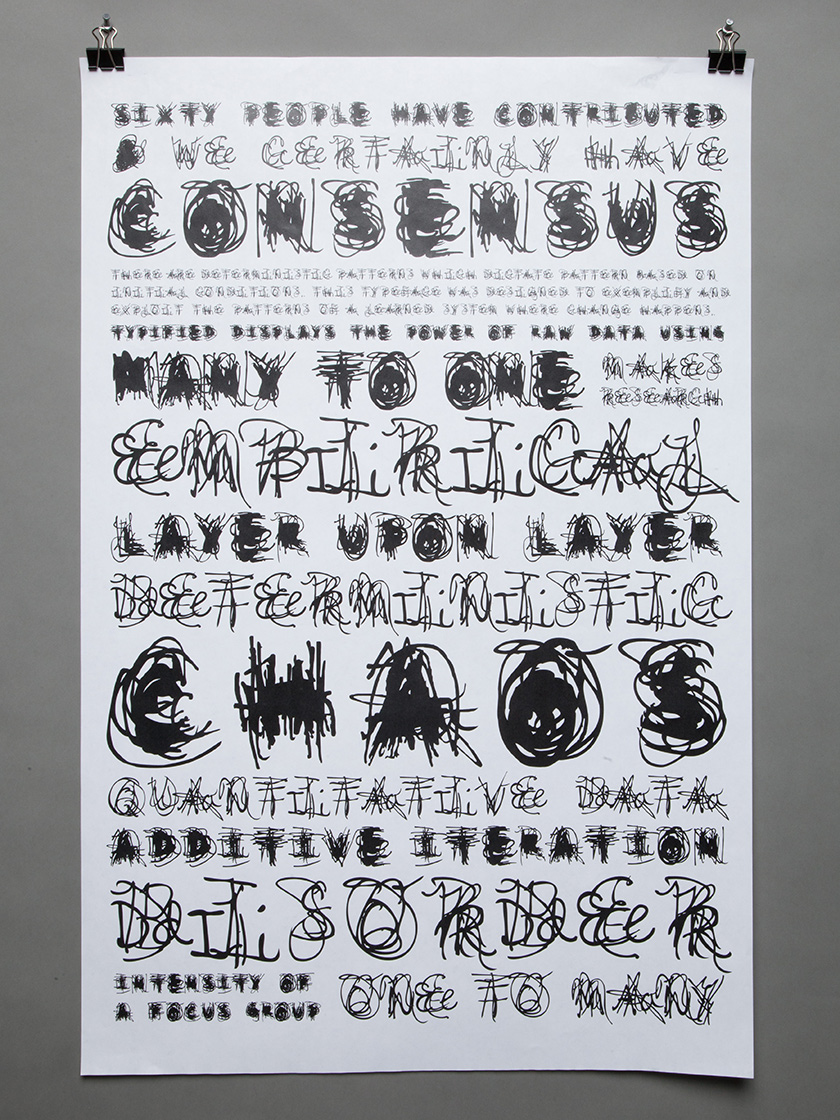 SIXTY PEOPLE HAVE CONTRIBUTED
& WE CERTAINLY HAVE
CONSENSUS
THERE ARE DETERMINISTIC PATTERNS WHICH DICTATE PATTERN BASED ON
INITIAL CONDITIONS. THIS TYPEFACE WAS DESIGNED TO EXEMPLIFY AND
EXPLOIT THE PATTERNS OF A LEARNED SYSTEM WHERE CHANGE HAPPENS.
TYPIFIED DISPLAYS THE POWER OF RAW DATA USING
MANY TO ONE MAKES
RESEARCH
EMPIRICAL
LAYER UPON LAYER
DETERMINISTIC
CHAOS
QUANTITATIVE DATA
ADDITIVE ITERATION
DISORDER
INTENSITY OF
A FOCUS GROUP
ONE TO MANY